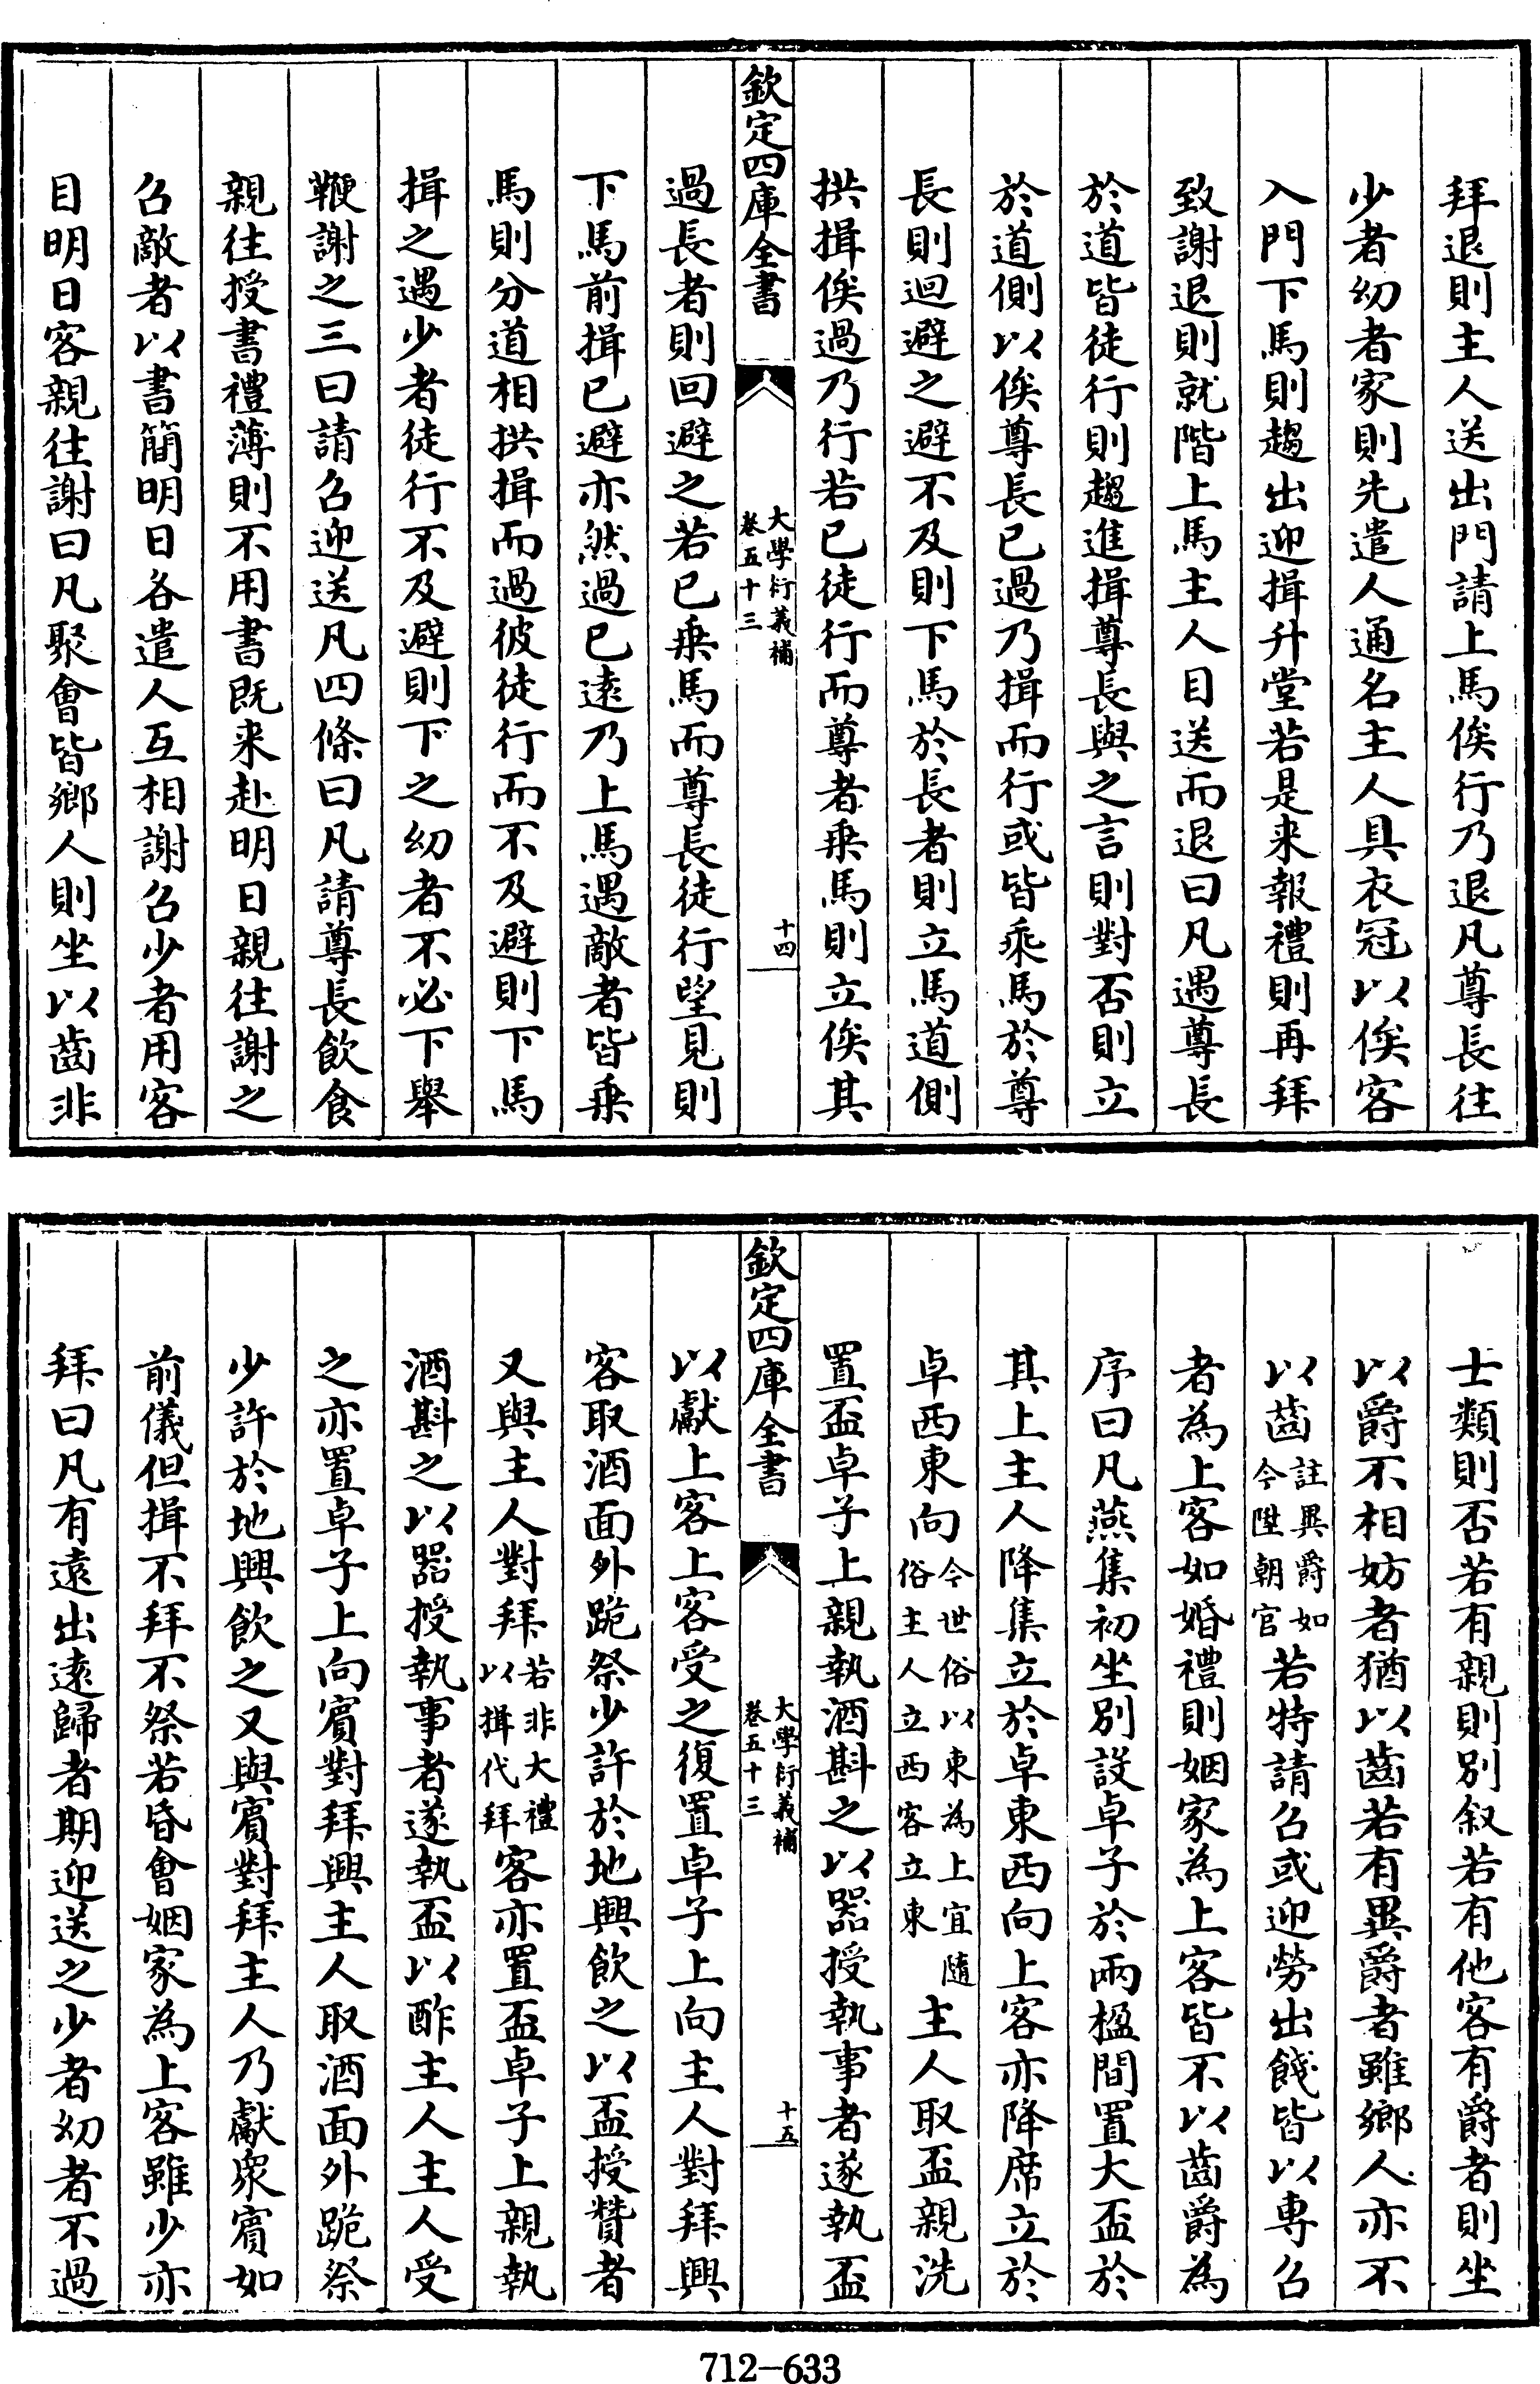 拜退則主人送出門請上馬俟行乃退凡尊長往
少者幼者家則先遣人通名主人具衣冠以俟客
入門下馬則趨出迎揖升堂若是来報禮則再拜
致謝退則就階上馬主人目送而退曰凡遇尊長
於道皆徒行則趨進揖尊長與之言則對否則立
於道側以俟尊長已過乃揖而行或皆乘馬於尊
長則迴避之避不及則下馬於長者則立馬道側
拱揖俟過乃行若已徒行而尊者乗馬則立俟其
欽定四庫全書
大學衍義補
卷五十三
十四
過長者則回避之若已乗馬而尊長徒行望見則
下馬前揖已避亦然過已遠乃上馬遇敵者皆乗
馬則分道相拱揖而過彼徒行而不及避則下馬
揖之遇少者徒行不及避則下之幼者不必下舉
鞭謝之三曰請召迎送凡四條曰凡請尊長飲食
親往授書禮薄則不用書既来赴明日親往謝之
召敵者以書簡明日各遣人互相謝召少者用客
目明日客親往謝曰凡聚會皆鄉人則坐以齒非
士類則否若有親則別叙若有他客有爵者則坐
以爵不相妨者猶以齒若有異爵者雖鄉人亦不
以齒註異爵如今陞朝官若特請召或迎勞出餞皆以專召
者為上客如婚禮則姻家為上客皆不以齒爵為
序曰凡燕集初坐別設卓子於兩楹間置大盃於
其上主人降集立於卓東西向上客亦降席立於
卓西東向今世俗以東為上宜隨俗主人立西客立東主人取盃親洗
置盃卓子上親執酒斟之以器授執事者遂執盃
欽定四庫全書
大學衍義補
卷五十三
十五
以獻上客上客受之復置卓子上向主人對拜興
客取酒面外跪祭少許於地興飲之以盃授贊者
又與主人對拜若非大禮以揖代拜客亦置盃卓子上親執
酒斟之以器授執事者遂執盃以酢主人主人受
之亦置卓子上向賓對拜興主人取酒面外跪祭
少許於地興飲之又與賓對拜主人乃獻衆賓如
前儀但揖不拜不祭若昏會姻家為上客雖少亦
拜曰凡有遠出遠歸者期迎送之少者幼者不過
712-633